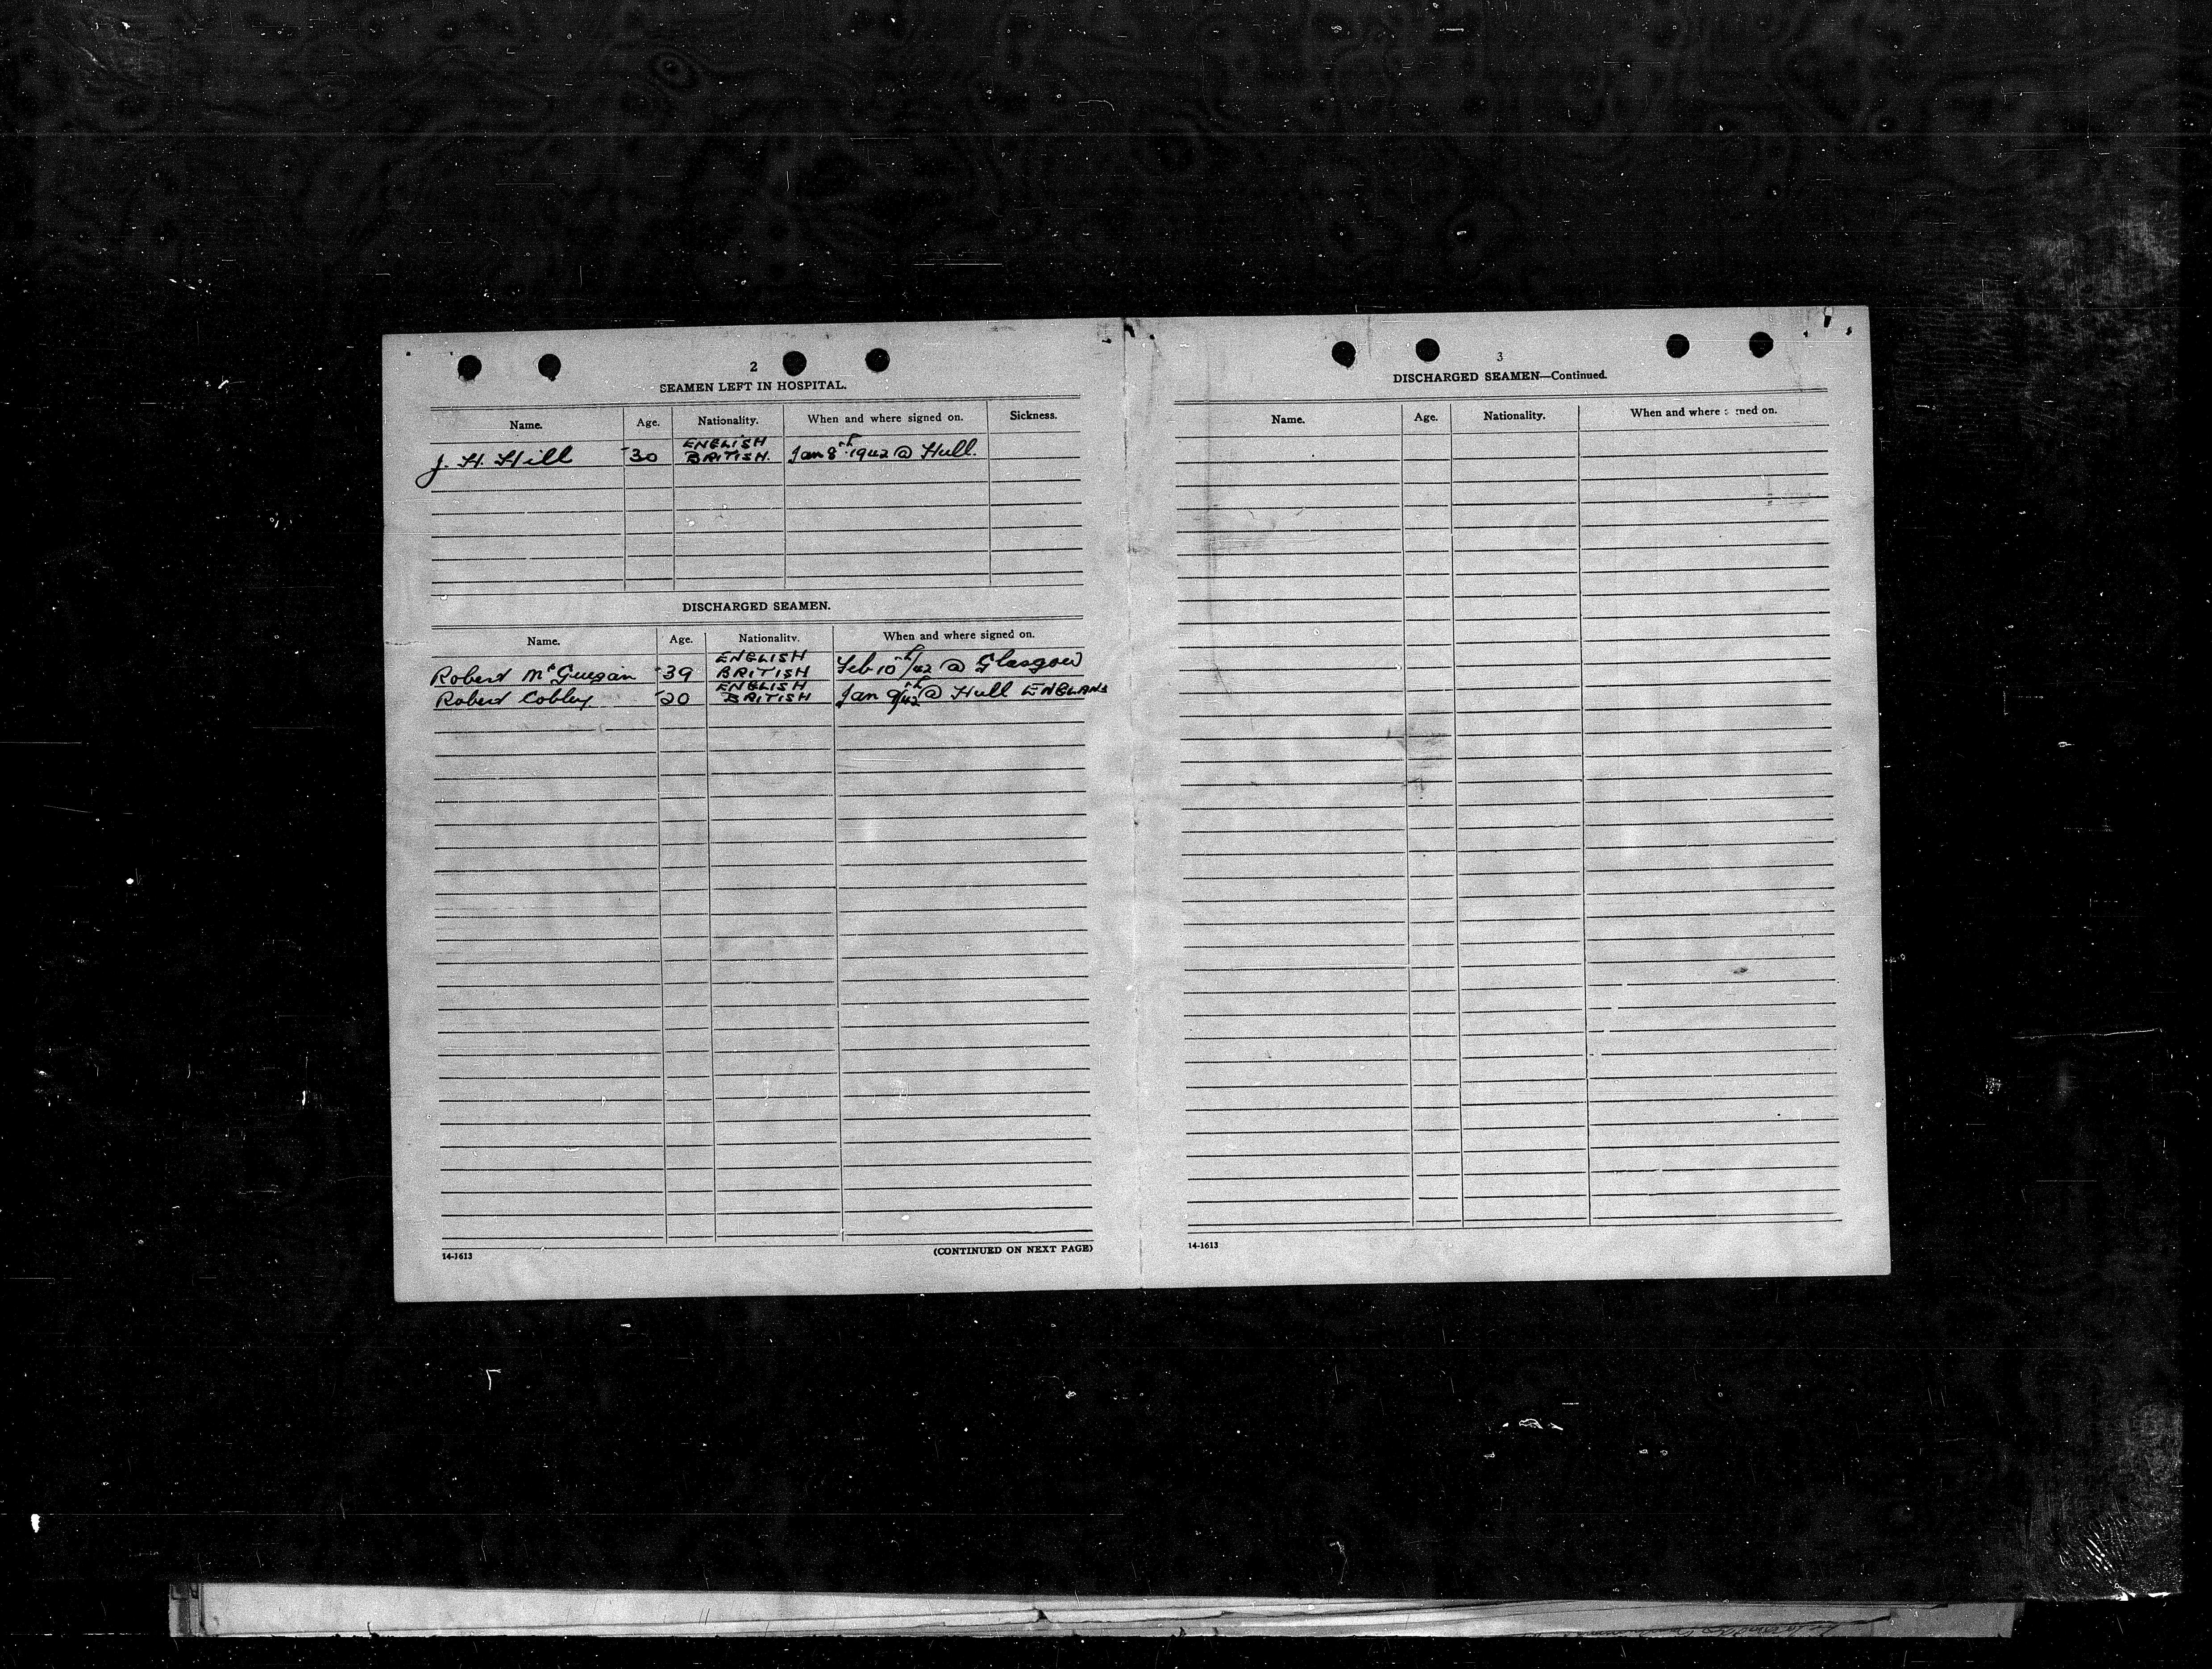 2
SEAMEN LEFT IN HOSPITAL.
Name. Age. Nationality. When and where signed on. Sickness.
ENGLISH
J. H. Hill 30 BRITISH. Jan 8th 1942 @ Hull.
DISCHARGED SEAMEN.
Name. Age. Nationality. When and where signed on.
ENGLISH
Robert McGuegan 39 BRITISH Feb 10th/42 @ Glasgow
ENGLISH
Robert Cobley 20 BRITISH Jan 9th/42 @ Hull ENGLAND
14-1613 (CONTINUED ON NEXT PAGE)
3
DISCHARGED SEAMEN—Continued.
Name. Age. Nationality. When and where signed on.
14-1613